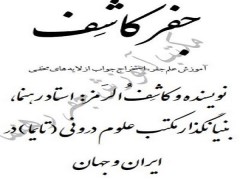 جفر کاشف
آموزش علم جفر، استخراج جواب از لایه‌های مخفی
نویسنده و کاشف الرمز: استاد رهنما،
بنیانگذار مکتب علوم درونی (تایما) در
ایران و جهان